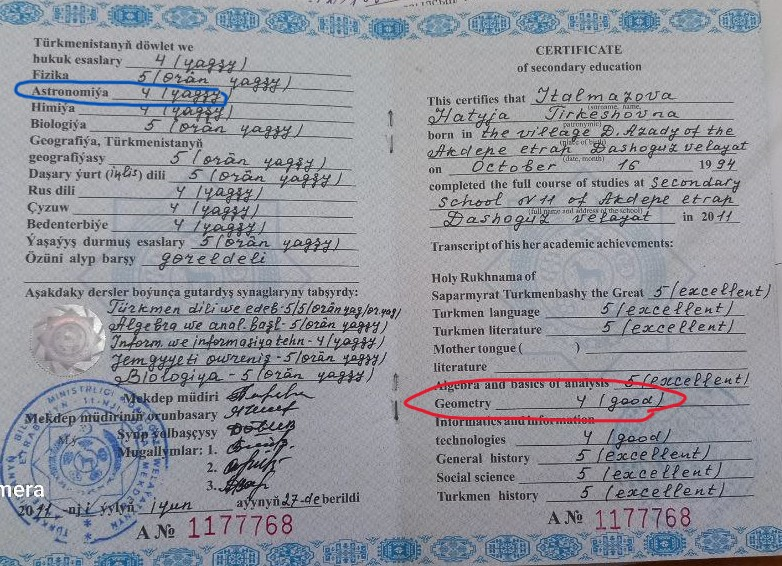 Türkmenistanyň döwlet we
hukuk esaslary 4 (ýagşy)
Fizika 5 (örän ýagşy)
Astronomiýa 4 (ýagşy
Himiýa 4 (ýagşy)
Biologiýa 5 (örän ýagşy)
Geografiýa, Türkmenistanyň
geografiýasy 5 (örän ýagşy)
Daşary ýurt (iňlis) dili 5 (örän ýagşy)
Rus dili 4 (ýagşy)
Çyzuw 4 (ýagşy)
Bedenterbiýe 4 (ýagşy)
Ýaşaýyş durmuş esaslary 5 (örän ýagşy)
Özüni alyp barşy göreldeli
Aşakdaky dersler boýunça gutardyş synaglaryny tapşyrdy:
Türkmen dili we edeb - 5/5 (örän ýag/ör.ýag)
Algebra we anal. başl - 5 (örän ýagşy)
Inform. we informasiýa tehn - 4 (ýagşy)
Jemgyýeti öwreniş - 5 (örän ýagşy)
Biologiýa - 5 (örän ýagşy)
Mekdep müdiri
Mekdep müdiriniň orunbasary
Synp ýolbaşçysy
Mugallymlar: 1.
2.
3.
2011 -nji ýylyň iýun aýynyň 27-de berildi
A № 1177768
mera
CERTIFICATE
of secondary education
This certifies that Italmazova
(surname, name,
Hatyja Tirkeshovna
patronymic)
born in the village D. Azady of the
(place of birth)
Akdepe etrap Dashoguz velayat
on October 16 1994
(date, month)
completed the full course of studies at Secondary
school N11 of Akdepe etrap
(full name and address of the school)
Dashoguz velayat in 2011
Transcript of his/her academic achievements:
Holy Rukhnama of
Saparmyrat Turkmenbashy the Great 5 (excellent)
Turkmen language 5 (excellent)
Turkmen literature 5 (excellent)
Mother tongue ( )
literature
Algebra and basics of analysis 5 (excellent)
Geometry 4 (good)
Informatics and information
technologies 4 (good)
General history 5 (excellent)
Social science 5 (excellent)
Turkmen history 5 (excellent)
A № 1177768